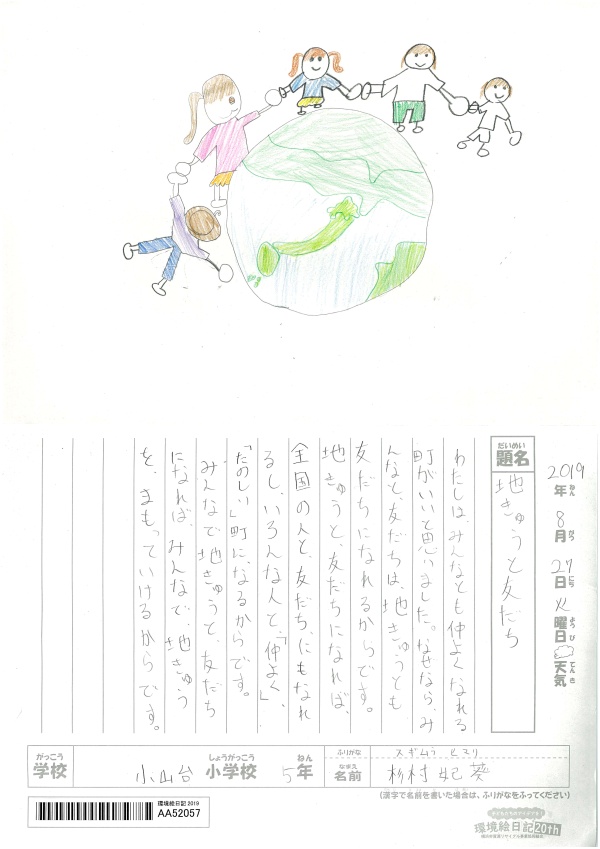 2019年ねん8月がつ27日にち火曜日ようび天気てんき
だいめい
題名
地きゅうと友だち
わたしは、みんなとも仲よくなれる
町がいいと思いました。なぜなら、み
んなと、友だちは地きゅうとも
友だちになれるからです。
地きゅうと、友だちになれば、
全国の人と、友だち、にもなれ
るし、いろんな人と、「仲よく」、
「たのしい」町に、なるからです。
みんなで地きゅうと、友だち
になれば、みんなで、地きゅう
を、まもっていけるからです。
がっこう しょうがっこう ねん
学校 小山台 小学校 5年
ふりがな スギムラ ヒマリ
なまえ
名前 杉村 妃葵
(漢字で名前を書いた場合は、ふりがなをふってください)
環境絵日記2019
AA52057
環境絵日記20th